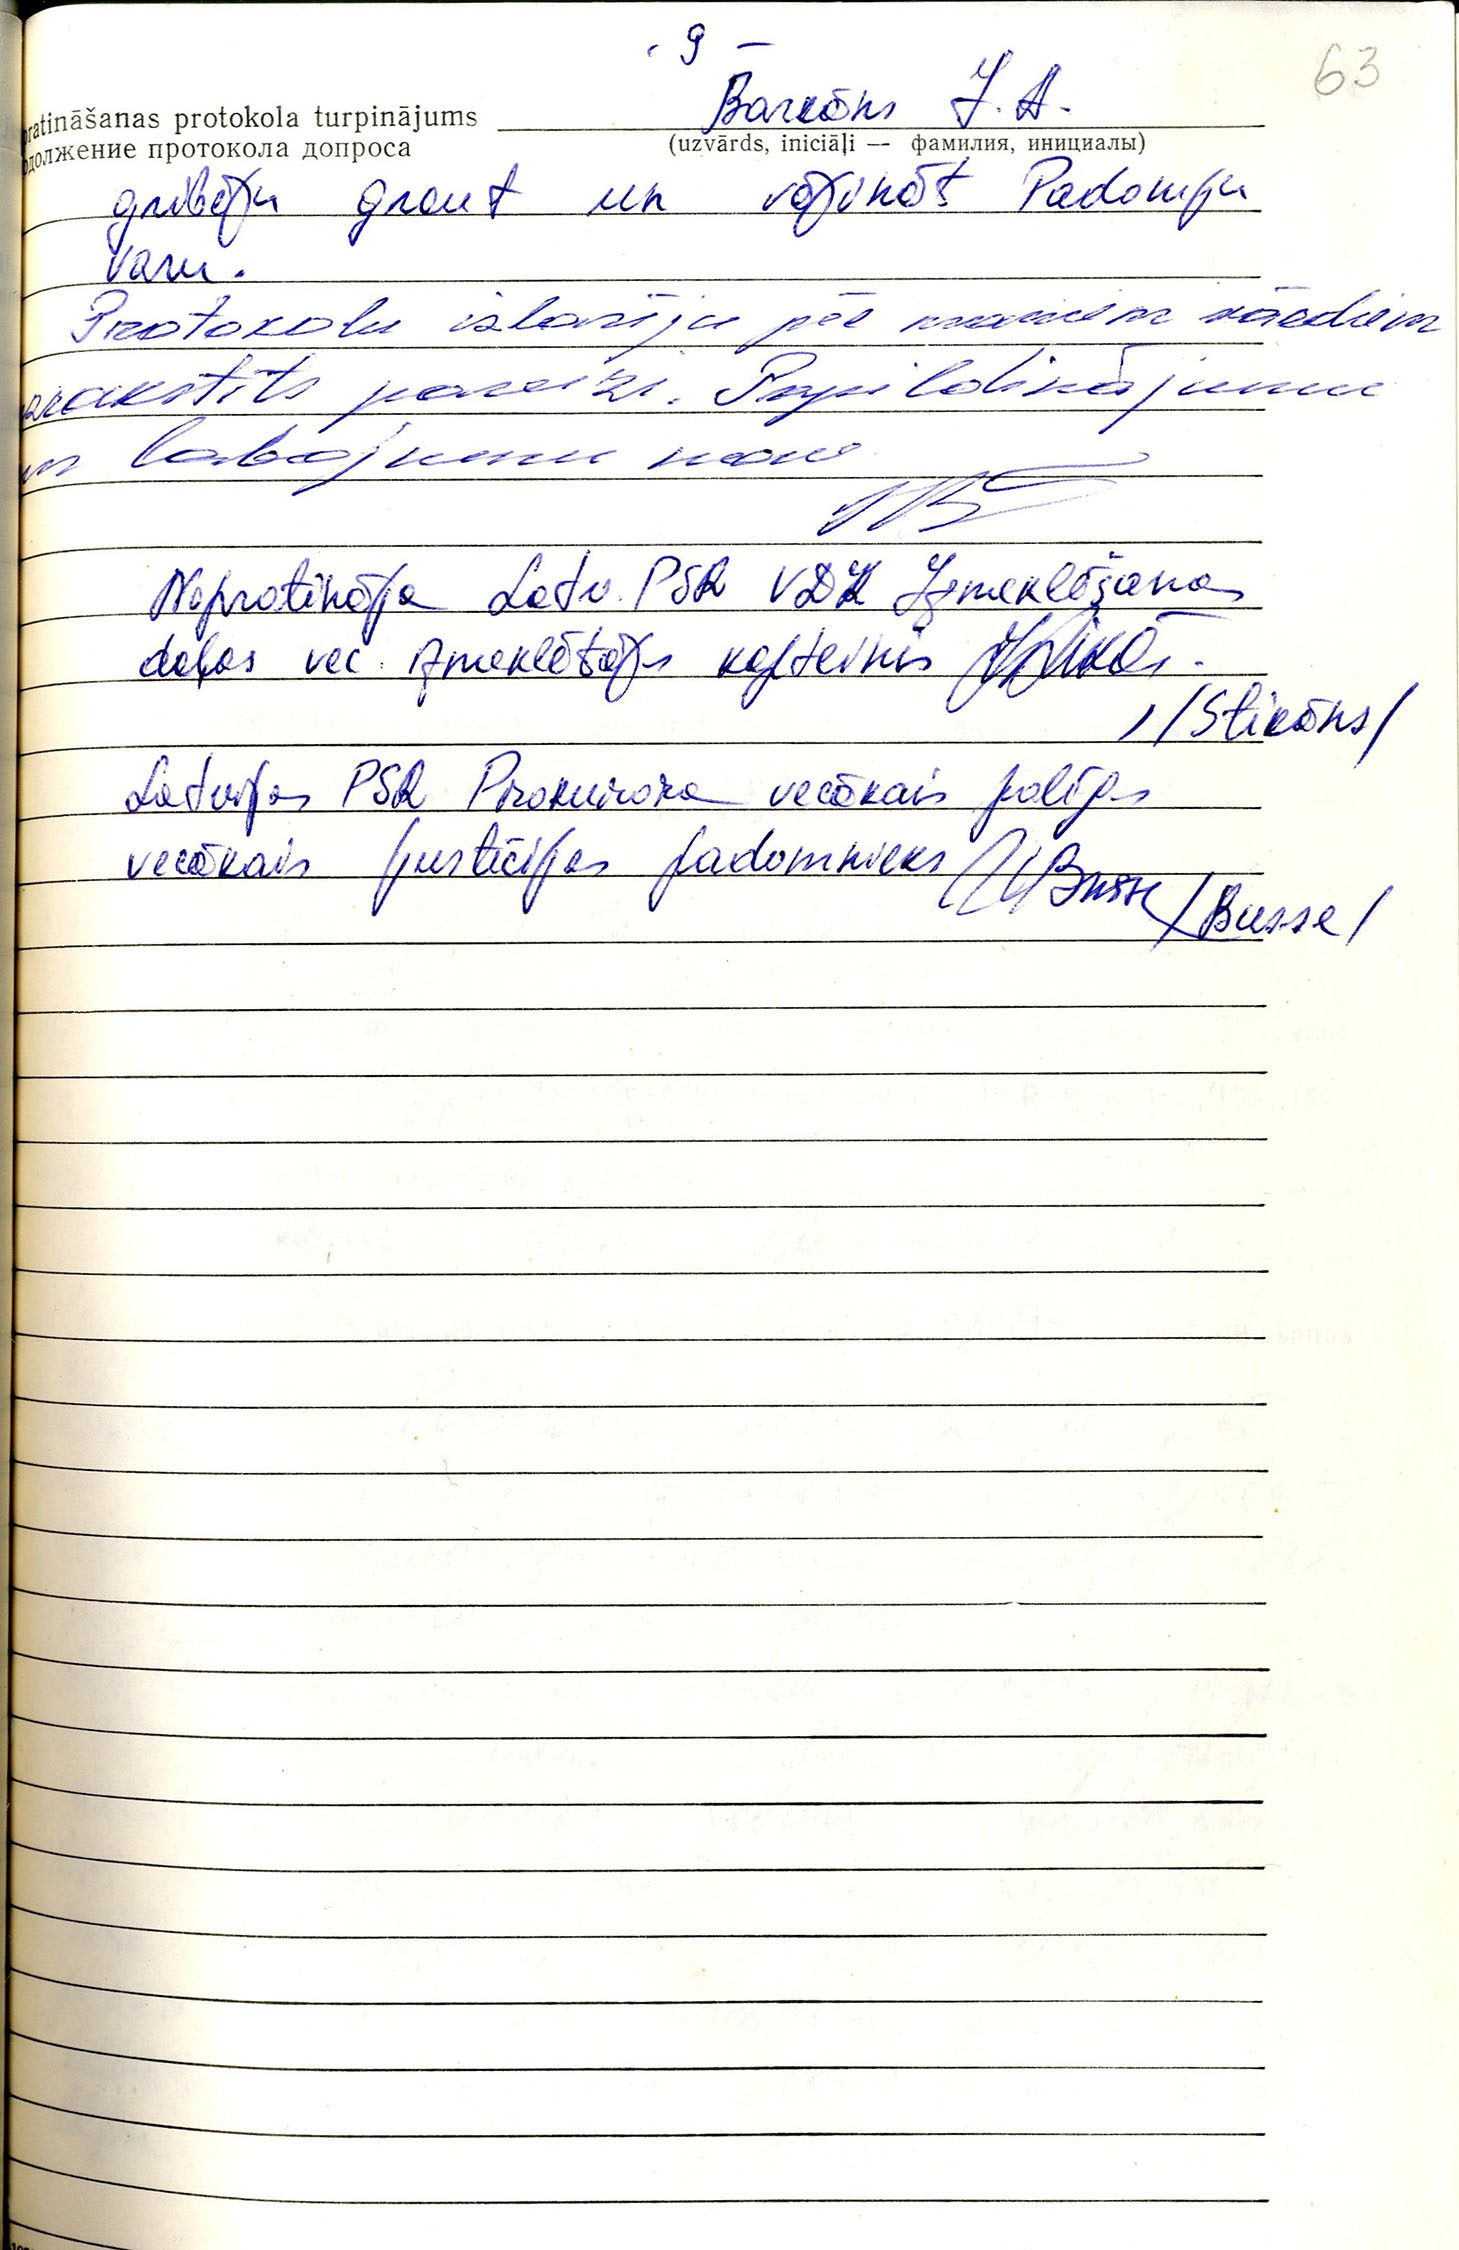 - 9 -
63
pratināšanas protokola turpinājums Barkāns J. A.
одолжение протокола допроса (uzvārds, iniciāļi — фамилия, инициалы)
gribēju graut un vājināt Padomju
varu.
Protokolu izlasīju pēc maniem vārdiem
uzrakstīts pareizi. Papildinājumu
un labojumu nav
Nopratināja Latv. PSR VDK Izmeklēšanas
daļas vec. izmeklētājs kapteinis
/Stikāns/
Latvijas PSR Prokurora vecākais palīgs
vecākais justīcijas padomnieks Busse /Busse/